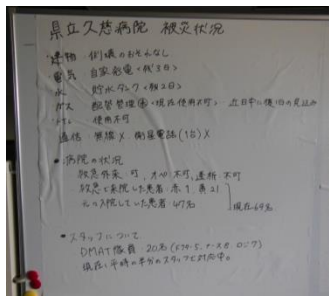 県立久慈病院 被災状況
建物 倒壊のおそれなし
電気 自家発電<残3日>
水 貯水タンク<残2日>
ガス 配管管理<現在使用不可> 近日中に復旧の見込み
使用不可
通信 無線× 衛星電話(1台)×
●病院の状況
救急外来 可,オペ不可,透析 不可
救急で来院した患者 赤1 黄21
元々入院していた患者 47名
現在69名
●スタッフについて
DMAT隊員 20名(ドクター5,ナース8 ロジ7)
現在,平時の半分のスタッフで対応中。